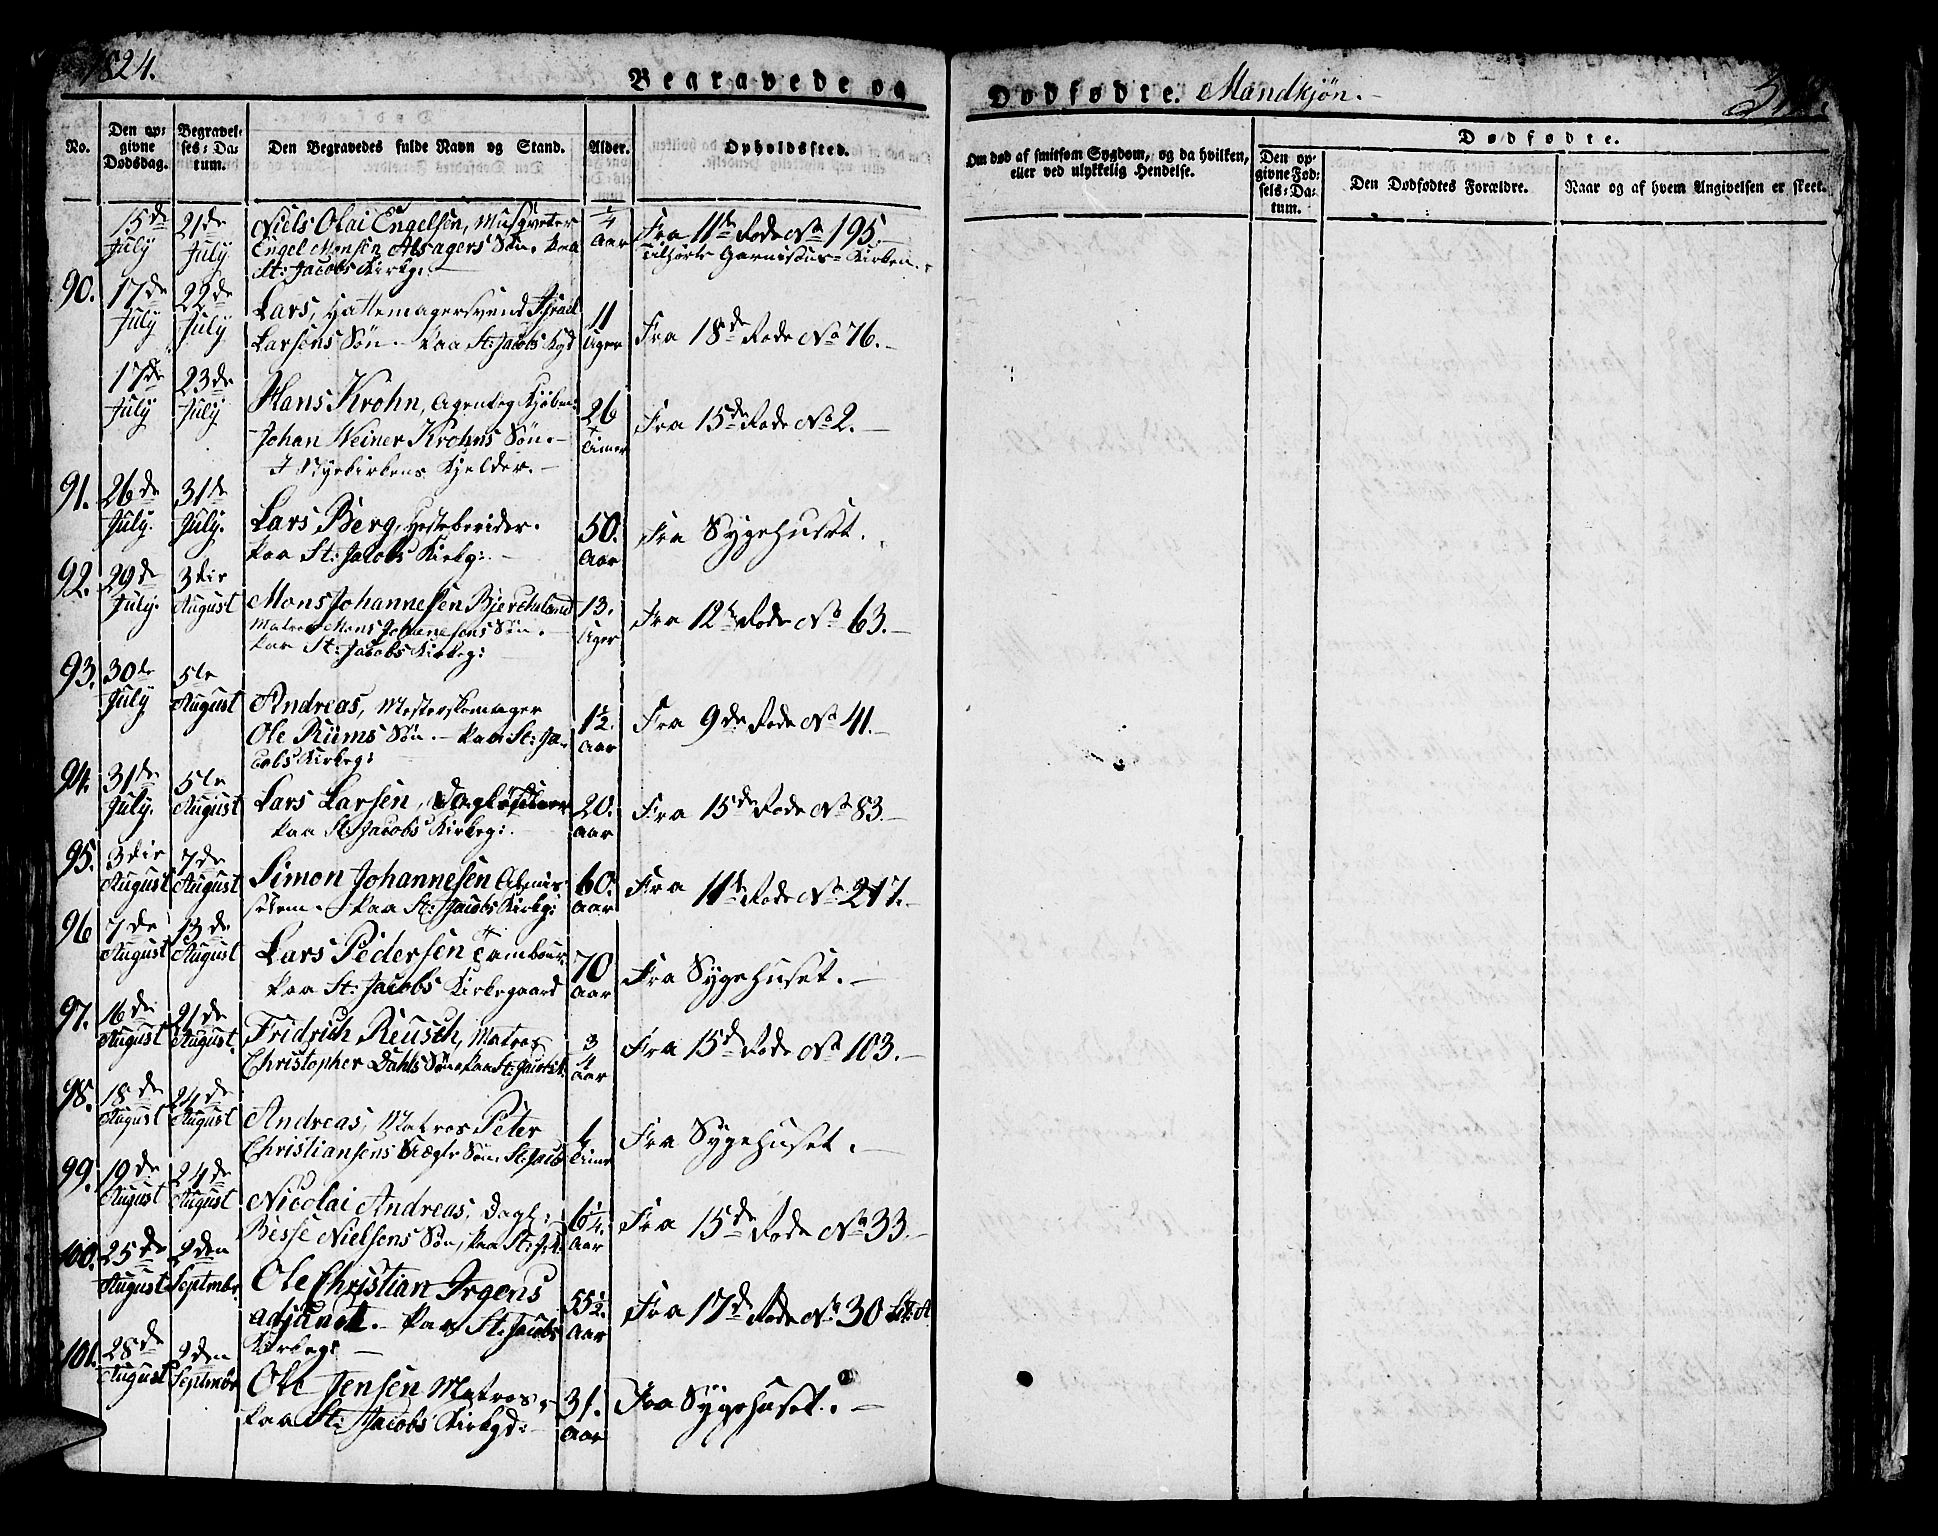 1824.
Begravede og
Dødfødte. Mandkjøn.
No.
Den opgivne Dødsdag.
Begravelses-Datum.
Den Begravedes fulde Navn og Stand.
Alder.
Opholdssted.
Om død af smitsom Sygdom, og da hvilken, eller ved ulykkelig Hendelse.
Dødfødte.
Den opgivne Fødsels-Datum.
Den Dødfødtes Forældre.
Naar og af hvem Angivelsen er skeet.
15de July 21de July Niels Olai Engelsen, Musqveter 1/4 Aar Fra 11te Rode No 195.
Engel Monsen Alsagers Søn. Paa Tilhørte Garnisons-Kirken.
St: Jacobs Kirkg:
90. 17de July 22de July Lars, Hattemagersvend Israel 11 Uger Fra 18de Rode No 76.
Larsens Søn. Paa St: Jacobs Kgd
17de July 23de July Hans Krohn, Agent og Kjøbm: 26 Timer Fra 15de Rode No 2.
Johan Weiner Krohns Søn.
I Nyekirkens Kjelder.
91. 26de July. 31de July. Lars Berg, Hesteberider. 50. Aar Fra Sygehuset.
Paa St: Jacobs Kirkg:
92. 29de July. 3die August Mons Johannesen 13. Uger Fra 12te Rode No 63.
Matros Mons Johannesens Søn.
Paa St: Jacobs Kirkeg:
93. 30te July 5te August Andreas, Mesterskomager 1 1/2. Aar Fra 9de Rode No 41.
Ole Rüms Søn. Paa St: Ja-
cobs Kirkeg:
94. 31te July. 5te August Lars Larsen, 20. Aar Fra 15de Rode No 83.
Paa St: Jacobs Kirkeg:
95. 3die August 7de August Simon Johannesen Almis- 60. Aar Fra 11te Rode No 217.
selem. Paa St: Jacobs Kirkg:
96 7de August 13de August Lars Pedersen Tambour. 70 Aar Fra Sygehuset.
Paa St: Jacobs Kirkegaard
97. 16de August 21de August. Fridrich Reusch, Matros 3/4 Aar Fra 15de Rode No 103.
Christopher Dahls Søn Paa St: Jacobs K.
98. 18de August 24de August Andreas, Matros Peter Fra Sygehuset.
Christiansens Søn. St: Jacob
99. 19de August 24de August Nicolai Andreas, Dagl: 6 1/4. Aar Fra 15de Rode No 33.
Besse Nielsens Søn, Paa St: J. K.
100. 25de August 2den Septmbr. Ole Christian Irgens 55 1/2. Aar Fra 17de Rode No 30 Litt: A.
adjunct. Paa St: Jacobs
Kirkeg:
101. 28de August 2den Septmbr Ole Jensen Matros, 31. Aar Fra Sygehuset.
Paa St: Jacobs Kirkgd: